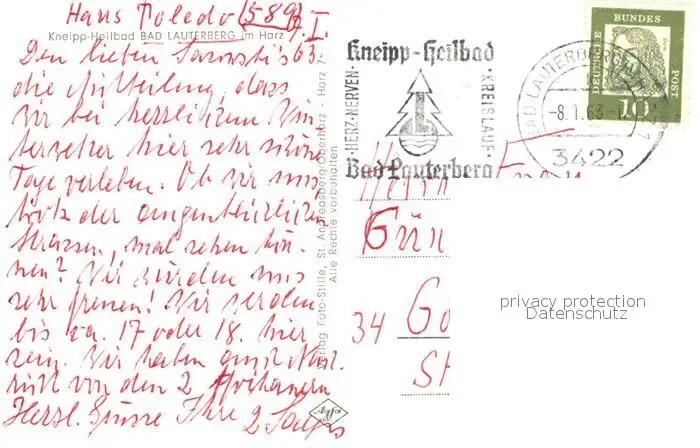 Haus Toledo (589) 7. I.
Kneipp-Heilbad BAD LAUTERBERG im Harz
63.
Den lieben
die Mitteilung, dass
wir bei herrlichem Win
terwetter hier sehr schöne
Tage verleben. Ob wir uns
trotz der augenblicklichen
Strassen, mal sehen kön-
nen? Wir würden uns
sehr freuen! Wir werden
bis ca. 17 oder 18. hier
sein. Wir haben Nach-
richt von den 2
Herzl. Grüsse Ihre 2
Verlag Foto-Stille, St. Andreasberg/Oberharz - Harz
Alle Rechte vorbehalten
Agfa
Kneipp-Heilbad
·HERZ·NERVEN·
·KREISLAUF·
Bad Lauterberg
BAD LAUTERBERG
-8.1.63-
3422
DEUTSCHE
BUNDES
POST
10
Herrn
Gün
34 Go
St
privacy protection
Datenschutz